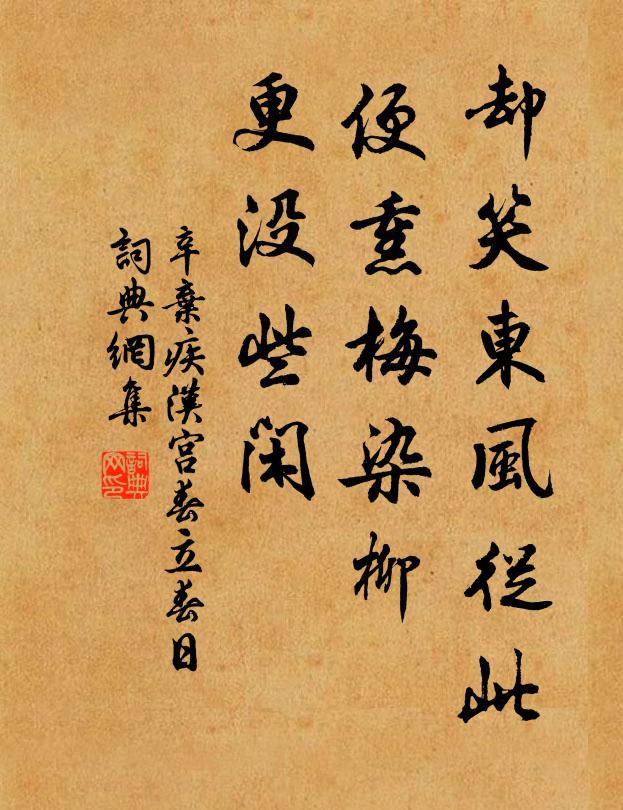 却笑東風從此
便熏梅染柳
更没些閑
辛棄疾漢宮春立春日
詞典網集
詞典网印